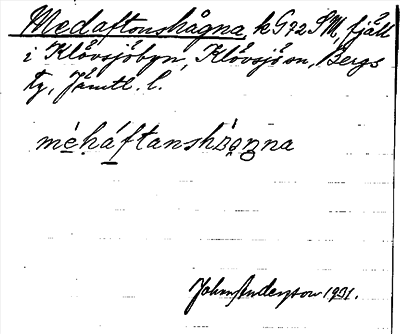 Medaftonshågna, k G72 SM, fjäll
i Klövsjöbyn, Klövsjö sn, Bergs
tg, Jämtl. l.
mèháftanshɔgna
John Anderson 1931.